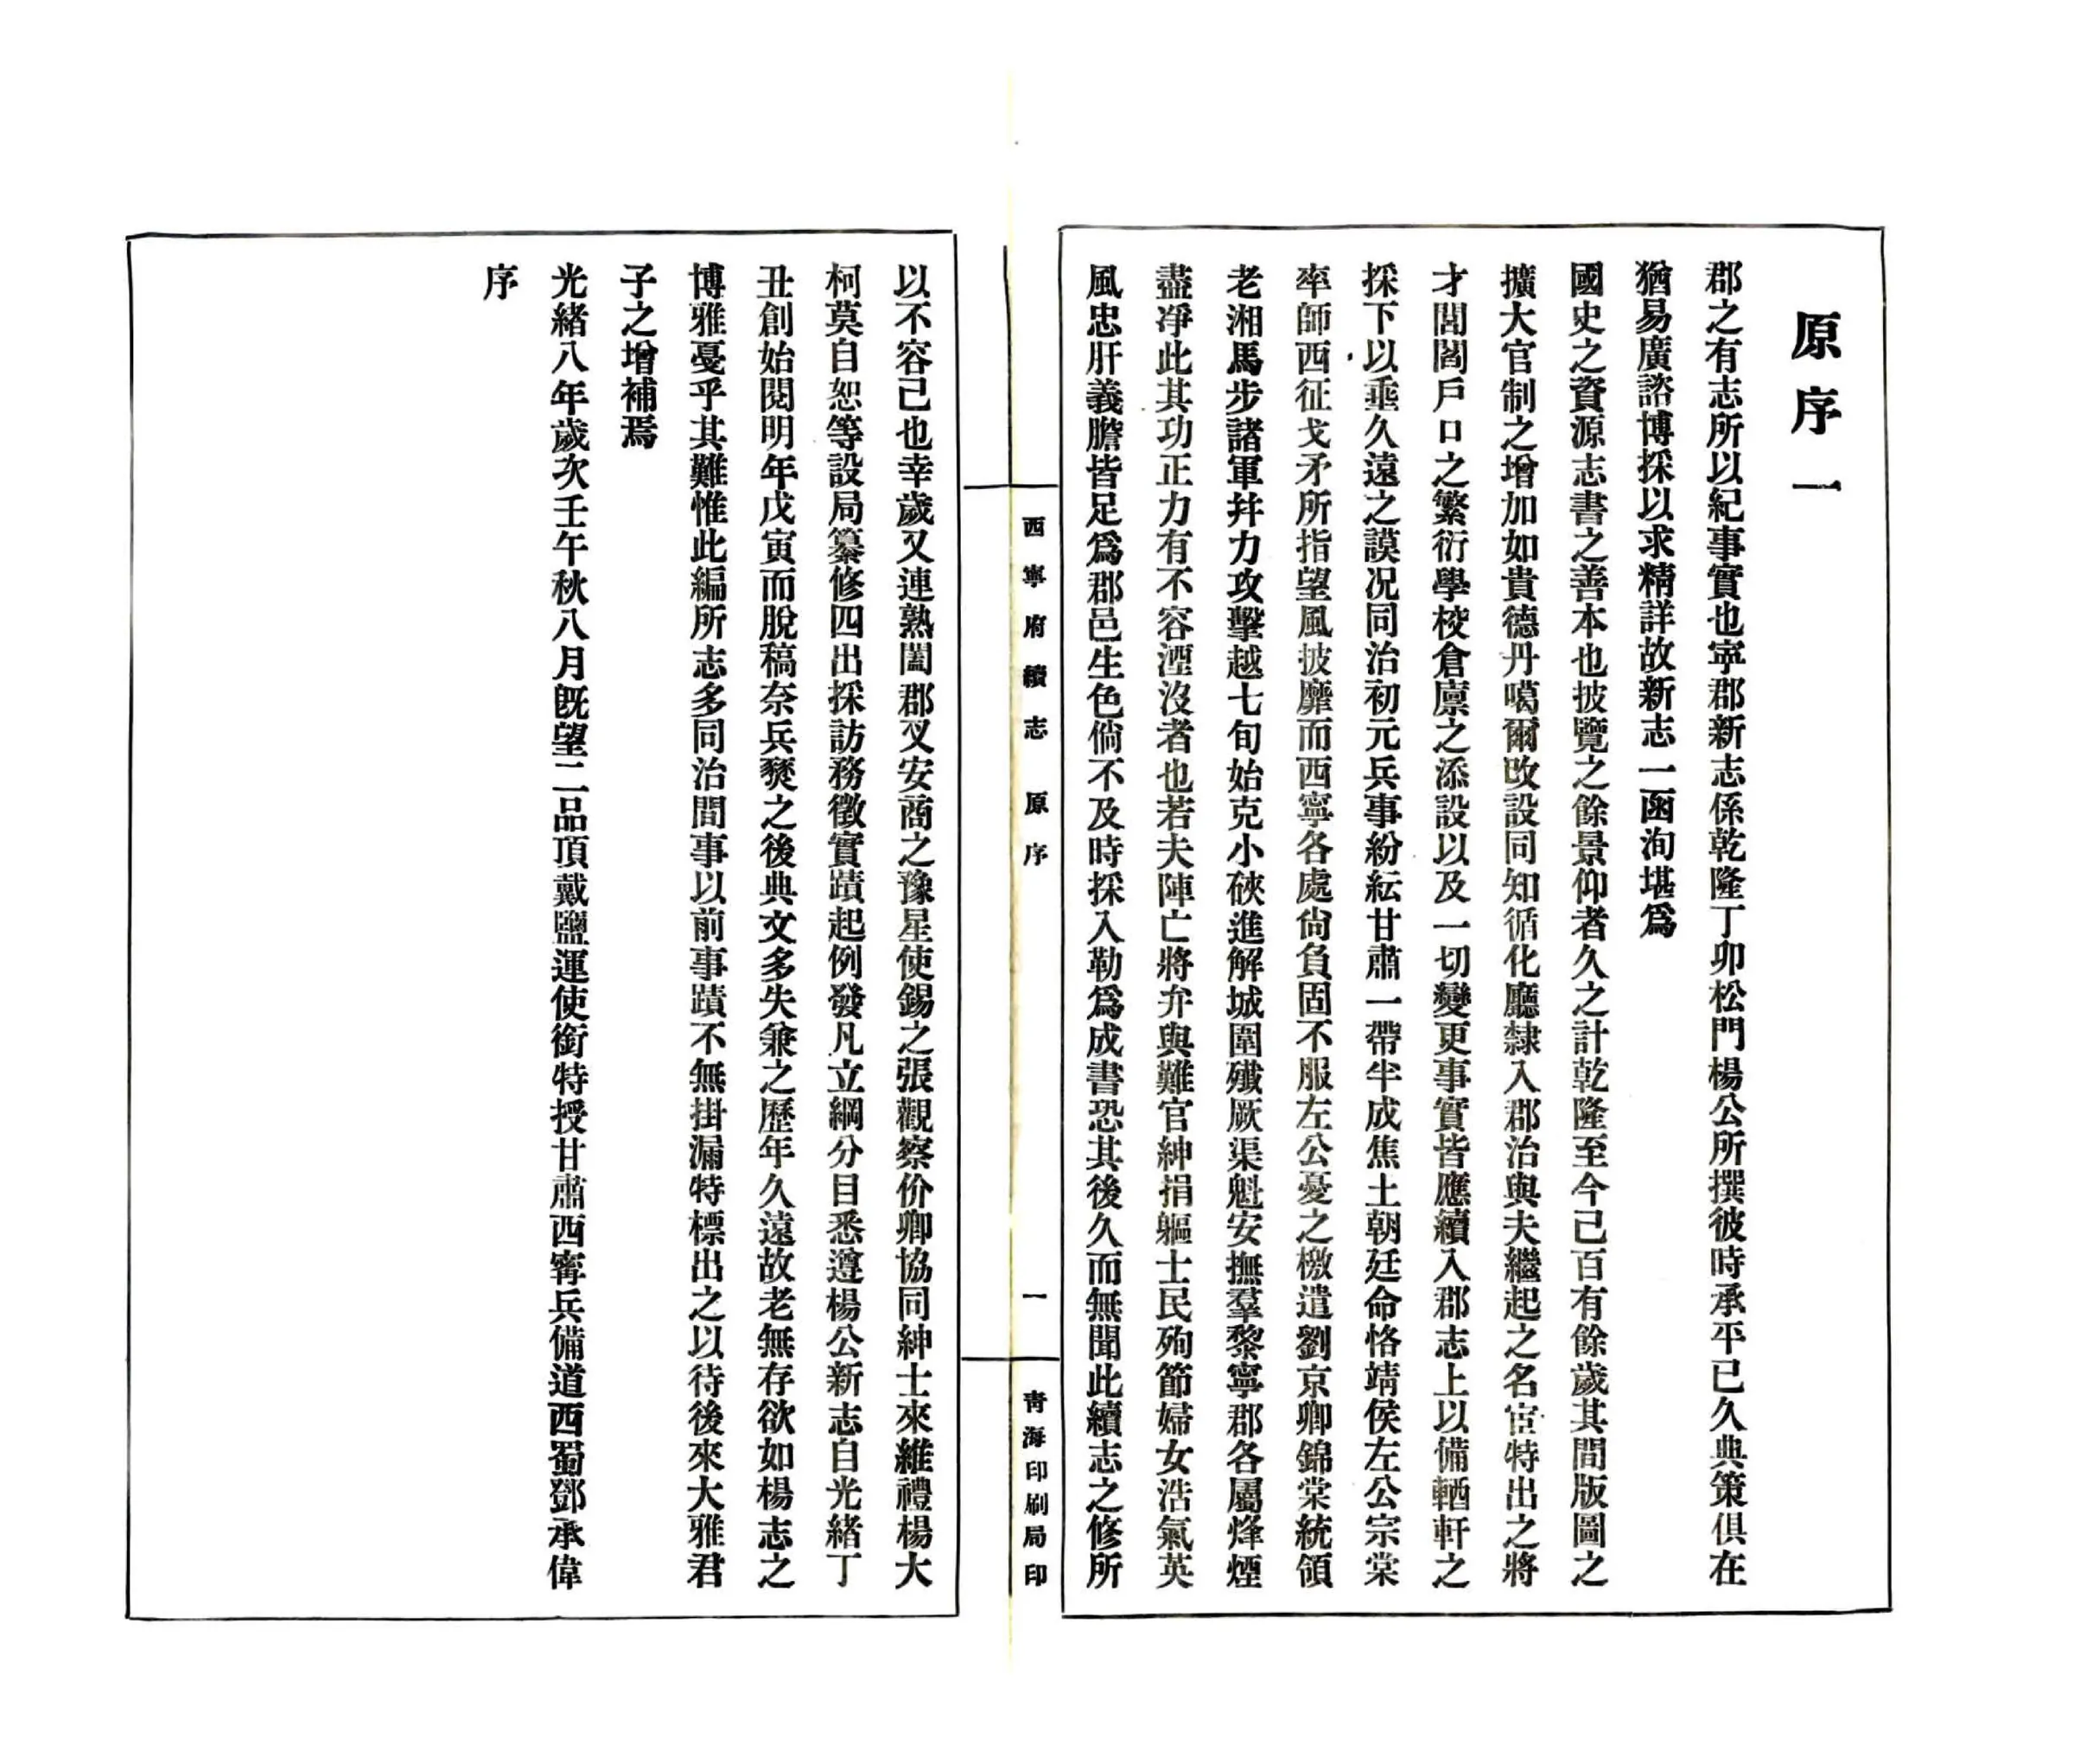 原序一
郡之有志所以紀事實也寧郡新志係乾隆丁卯松門楊公所撰彼時承平已久典策俱在
猶易廣諮博採以求精詳故新志一函洵堪爲
國史之資源志書之善本也披覽之餘景仰者久之計乾隆至今己百有餘歲其間版圖之
擴大官制之增加如貴德丹噶爾改設同知循化廳隸入郡治與夫繼起之名宦特出之將
才閭閻戶口之繁衍學校倉廩之添設以及一切變更事實皆應續入郡志上以備輶軒之
採下以垂久遠之謨况同治初元兵事紛紜甘肅一帶半成焦土朝廷命恪靖侯左公宗棠
率師西征戈矛所指望風披靡而西寧各處尙負固不服左公憂之檄遣劉京卿錦棠統領
老湘馬步諸軍幷力攻擊越七旬始克小硤進解城圍殲厥渠魁安撫羣黎寧郡各屬烽煙
盡凈此其功正力有不容湮沒者也若夫陣亡將弁與難官紳捐軀士民殉節婦女浩氣英
風忠肝義膽皆足爲郡邑生色倘不及時採入勒爲成書恐其後久而無聞此續志之修所
西寧府續志 原序
一
青海印刷局印
以不容已也幸歲又連熟闔郡乂安商之豫星使錫之張觀察价卿協同紳士來維禮楊大
柯莫自恕等設局纂修四出採訪務徵實蹟起例發凡立綱分目悉遵楊公新志自光緒丁
丑創始閱明年戊寅而脫稿奈兵燹之後典文多失兼之歷年久遠故老無存欲如楊志之
博雅戞乎其難惟此編所志多同治間事以前事蹟不無掛漏特標出之以待後來大雅君
子之增補焉
光緒八年歲次壬午秋八月旣望二品頂戴鹽運使銜特授甘肅西寧兵備道西蜀鄧承偉
序